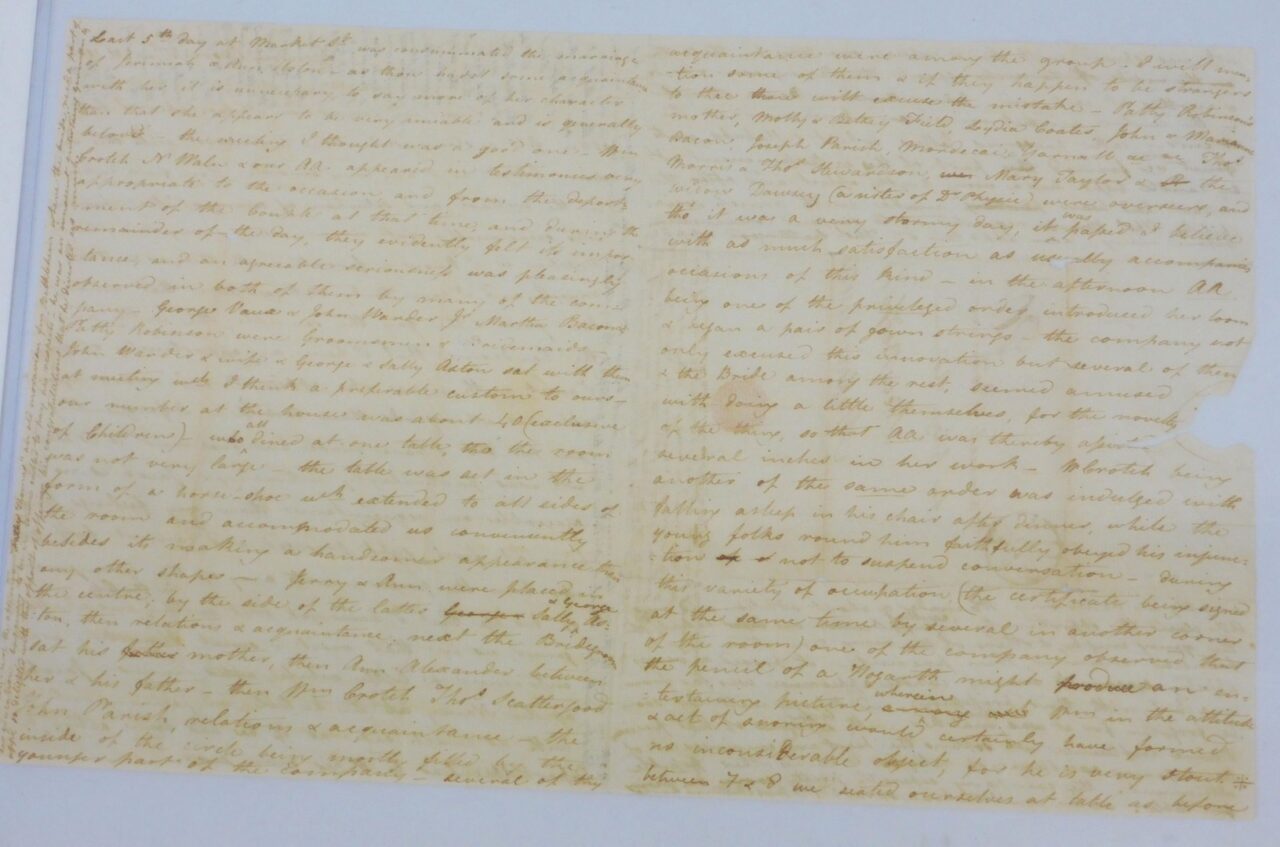 Last 5th day at Market St was consummated the marriage
of Jeremiah & Ann as thou hadst some acquaintance
with her it is unnecessary to say more of her character
than that she appears to be very amiable and is generally
belov'd - the meeting I thought was a good one - Wm
Crotch N Waln & our AA. appeared in testimonies very
appropriate to the occasion, and from the deport-
ment of the Couple at that time, and during the
remainder of the day, they evidently felt its impor-
tance, and an agreeable seriousness was pleasingly
observed in both of them by many of the com-
pany - George Vaux & John Warder Jr Martha Bacon &
Patty Robinson were Groomsmen & Bridemaids
John Warder & wife & George & Sally Aston sat with them
at meeting wch I think a preferable custom to ours -
our number at the house was about 40 (exclusive
of Children) - who all dined at one table, tho the room
was not very large - the table was set in the
form of a horse-shoe wh extended to all sides of
the room and accommodated us conveniently
besides its making a handsomer appearance than
any other shape - Jerry & Ann were placed in
the centre, by the side of the latter Sally & George As-
ton, then relations & acquaintance. next the Bridegroom
sat his mother, then Ann Alexander between
her & his father - then Wm Crotch Thos Scattergood
John Parish, relations & acquaintance - the
inside of the circle being mostly filled by the
younger part of the Company - several of thy
acquaintance were among the group. I will men-
tion some of them & if they happen to be strangers
to thee thou wilt excuse the mistake - Patty Robinson's
mother, Molly & Betty Field, Lydia Coates, John & Marianne
Bacon, Joseph Parish, Mordecai Yarnall &c &c Thos
Morris & Thos Stewardson, Mary Taylor & the
widow Dawsey (a sister of Dr Physic) were overseers, and
tho' it was a very stormy day, it was passed I believe
with as much satisfaction as usually accompanies
occasions of this kind - in the afternoon AA
being one of the privileged order introduced her loom
& began a pair of gown strings - the company not
only excused this innovation but several of them
& the Bride among the rest, seemed amused
with doing a little themselves, for the novelty
of the thing, so that AA was thereby
several inches in her work - W Crotch being
another of the same order was indulged with
falling asleep in his chair after dinner, while the
young folks round him faithfully obeyed his injunc-
tion not to suspend conversation - during
this variety of occupation (the certificate being signed
at the same time by several in another corner
of the room) one of the company observed that
the pencil of a Hogarth might produce an en-
tertaining picture, wherein Wm in the attitude
& act of snoring would certainly have formed
no inconsiderable object, for he is very stout -
between 7 & 8 we seated ourselves at table as before